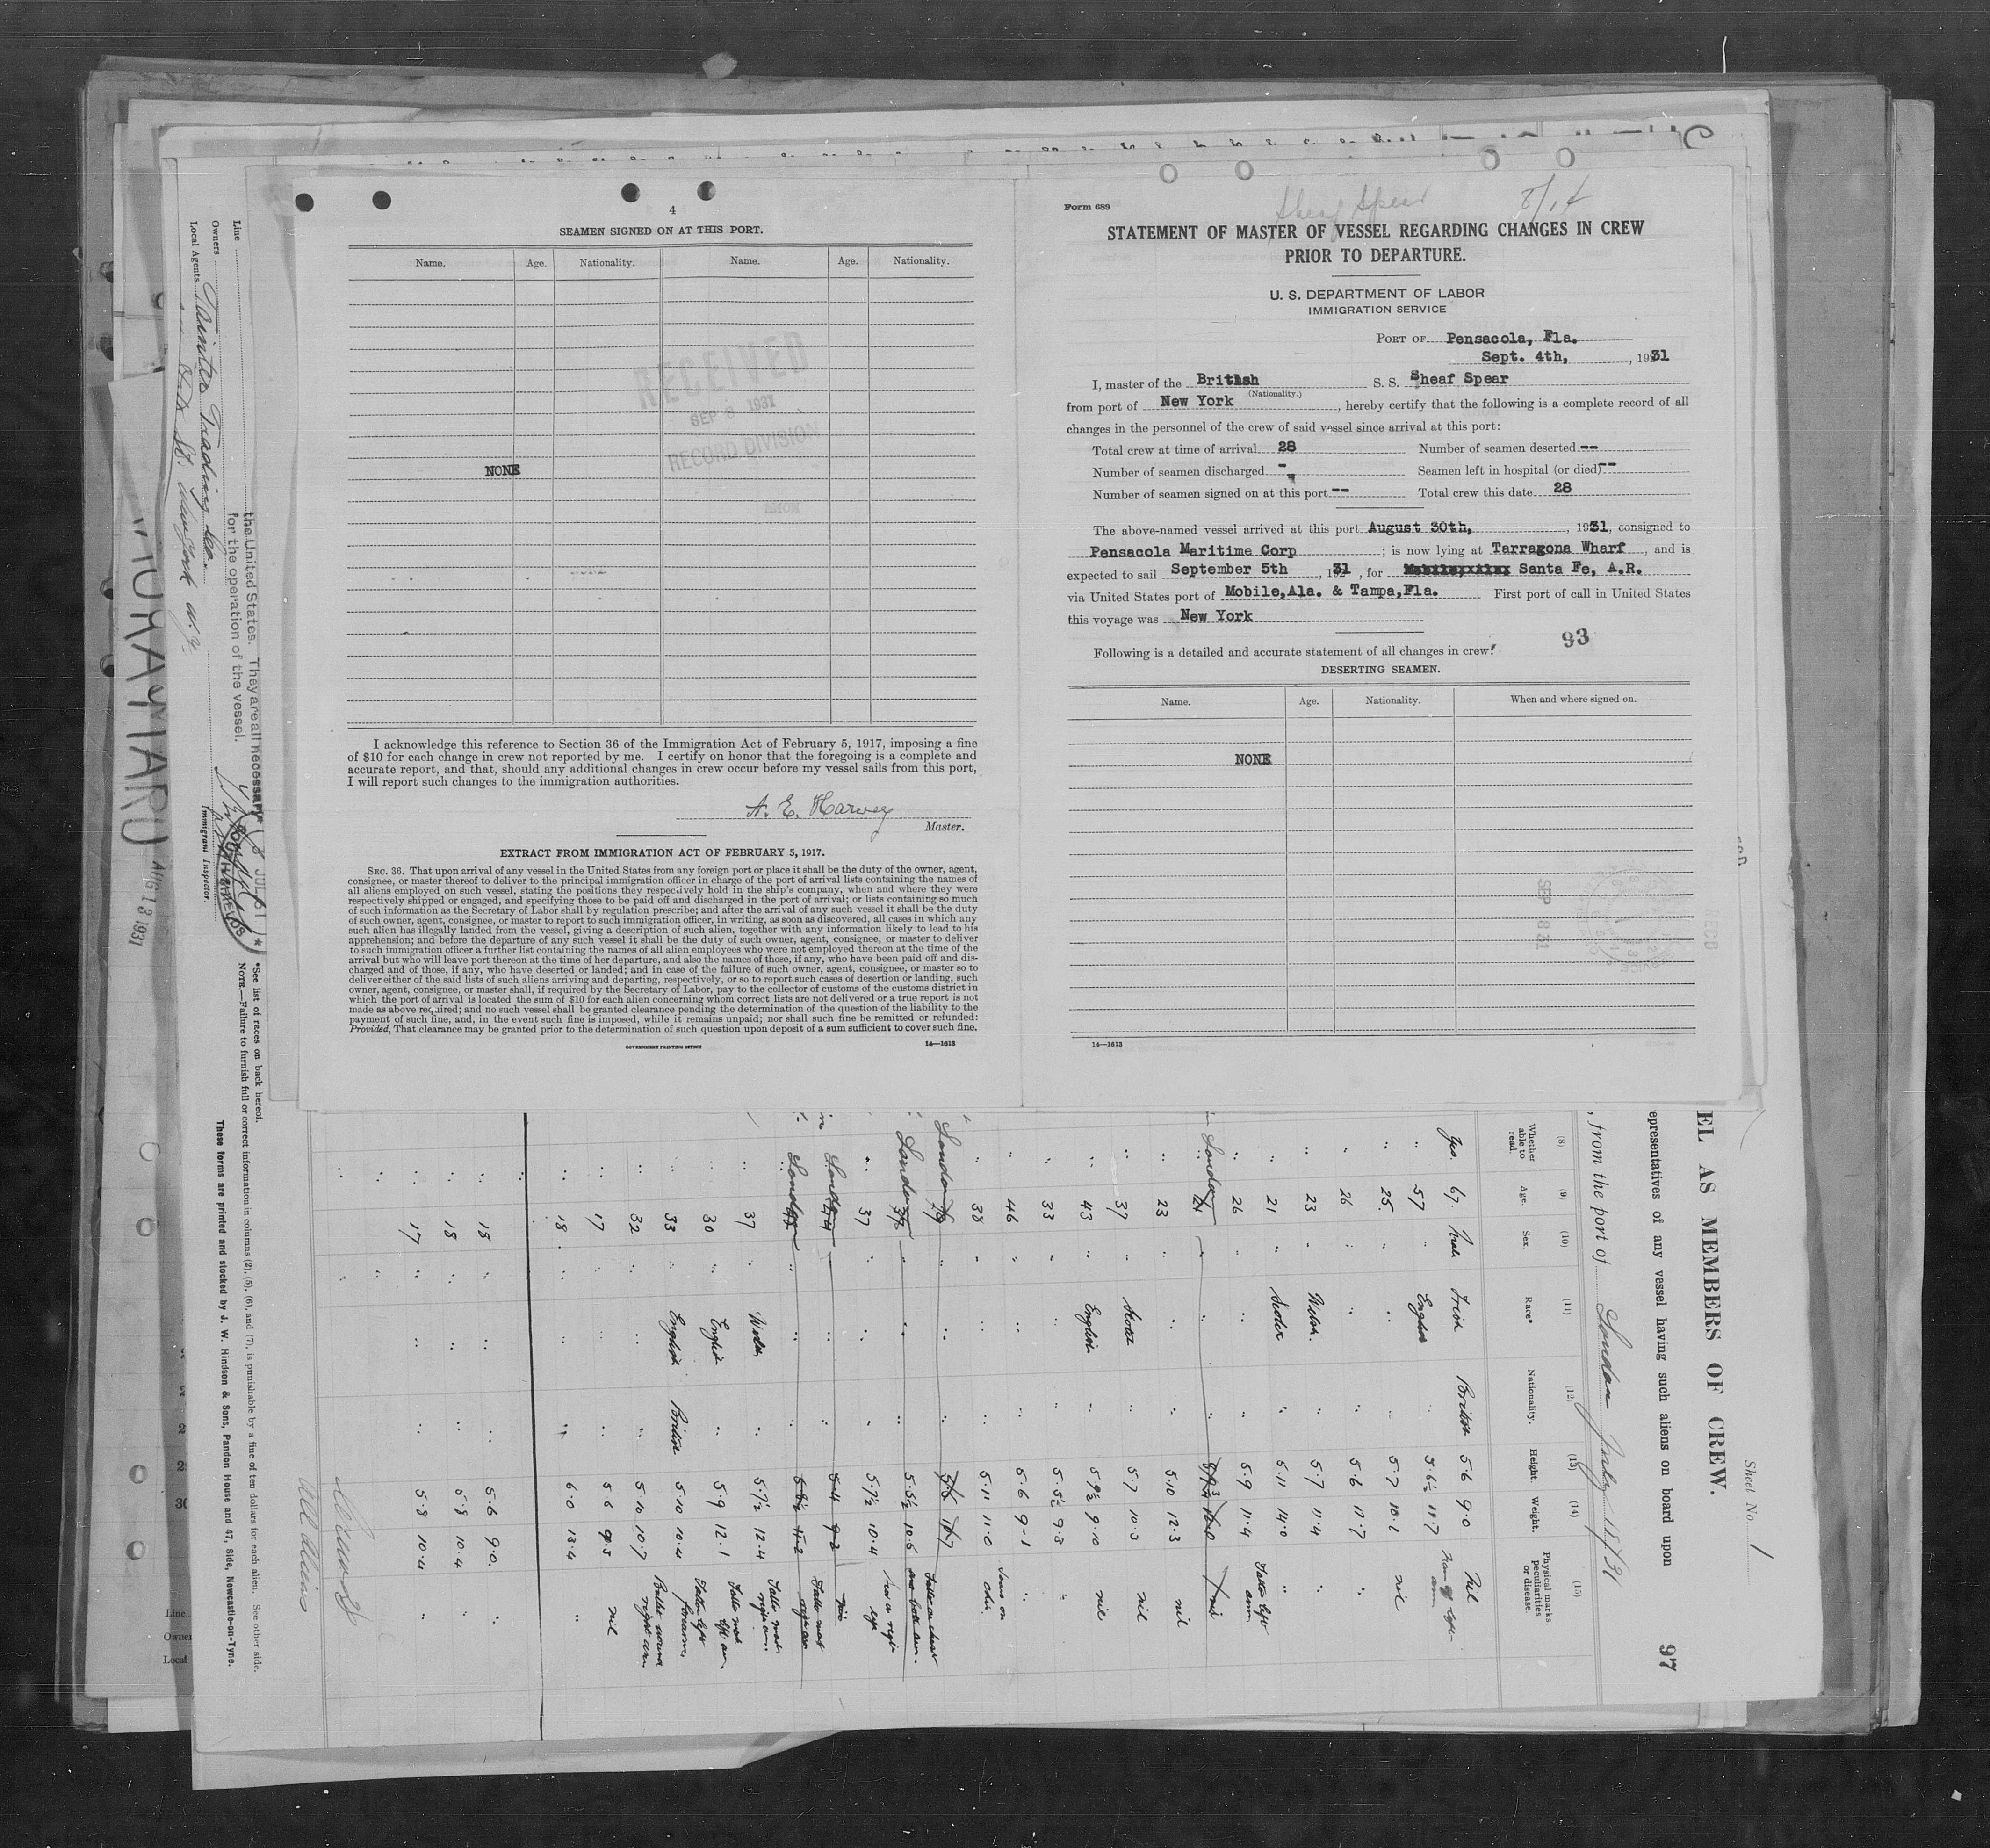 4
SEAMEN SIGNED ON AT THIS PORT.
Name. Age. Nationality. Name. Age. Nationality.
RECEIVED
SEP 8 1931
RECORD DIVISION
NONE
I acknowledge this reference to Section 36 of the Immigration Act of February 5, 1917, imposing a fine
of $10 for each change in crew not reported by me. I certify on honor that the foregoing is a complete and
accurate report, and that, should any additional changes in crew occur before my vessel sails from this port,
I will report such changes to the immigration authorities.
A. E. Harvey
Master.
EXTRACT FROM IMMIGRATION ACT OF FEBRUARY 5, 1917.
SEC. 36. That upon arrival of any vessel in the United States from any foreign port or place it shall be the duty of the owner, agent,
consignee, or master thereof to deliver to the principal immigration officer in charge of the port of arrival lists containing the names of
all aliens employed on such vessel, stating the positions they respectively hold in the ship's company, when and where they were
respectively shipped or engaged, and specifying those to be paid off and discharged in the port of arrival; or lists containing so much
of such information as the Secretary of Labor shall by regulation prescribe; and after the arrival of any such vessel it shall be the duty
of such owner, agent, consignee, or master to report to such immigration officer, in writing, as soon as discovered, all cases in which any
such alien has illegally landed from the vessel, giving a description of such alien, together with any information likely to lead to his
apprehension; and before the departure of any such vessel it shall be the duty of such owner, agent, consignee, or master to deliver
to such immigration officer a further list containing the names of all alien employees who were not employed thereon at the time of the
arrival but who will leave port thereon at the time of her departure, and also the names of those, if any, who have been paid off and dis-
charged and of those, if any, who have deserted or landed; and in case of the failure of such owner, agent, consignee, or master so to
deliver either of the said lists of such aliens arriving and departing, respectively, or so to report such cases of desertion or landing, such
owner, agent, consignee, or master shall, if required by the Secretary of Labor, pay to the collector of customs of the customs district in
which the port of arrival is located the sum of $10 for each alien concerning whom correct lists are not delivered or a true report is not
made as above required; and no such vessel shall be granted clearance pending the determination of the question of the liability to the
payment of such fine, and, in the event such fine is imposed, while it remains unpaid; nor shall such fine be remitted or refunded:
Provided, That clearance may be granted prior to the determination of such question upon deposit of a sum sufficient to cover such fine.
GOVERNMENT PRINTING OFFICE 14—1613
Sheaf Spear 8/14
Form 689
STATEMENT OF MASTER OF VESSEL REGARDING CHANGES IN CREW
PRIOR TO DEPARTURE.
U. S. DEPARTMENT OF LABOR
IMMIGRATION SERVICE
PORT OF Pensacola, Fla.
Sept. 4th, , 1931
I, master of the British S. S. Sheaf Spear
(Nationality.)
from port of New York , hereby certify that the following is a complete record of all
changes in the personnel of the crew of said vessel since arrival at this port:
Total crew at time of arrival 28 Number of seamen deserted --
Number of seamen discharged - Seamen left in hospital (or died) --
Number of seamen signed on at this port -- Total crew this date 28
The above-named vessel arrived at this port August 30th, , 1931, consigned to
Pensacola Maritime Corp ; is now lying at Tarragona Wharf , and is
expected to sail September 5th , 1931 , for Santa Fe, A.R.
via United States port of Mobile,Ala. & Tampa,Fla. First port of call in United States
this voyage was New York
93
Following is a detailed and accurate statement of all changes in crew:
DESERTING SEAMEN.
Name. Age. Nationality. When and where signed on.
NONE
SEP 8 31
14—1613
Sheet No. 1
EL AS MEMBERS OF CREW.
epresentatives of any vessel having such aliens on board upon
97
, from the port of London July 18/31
(8) (9) (10) (11) (12) (13) (14) (15)
Whether able to read. Age. Sex. Race* Nationality. Height. Weight. Physical marks peculiarities or disease.
Yes. 67. Male Irish British 5.6 9.0 Nil
" 57 " English 5.6½ 11.7
" 25. " " 5.7 10.2 nil
" 26 " " 5.6 11.7 "
" 23 " Welsh. " 5.7 11.4 "
" 21 " " 5.11 14.0 "
" 26 " " " 5.9 11.4 Tattoo left arm
London 21 nil
" 23 " " " 5.10 12.3 nil
" 37 " Scotch " 5.7 10.3 nil
" 43 " English " 5.9½ 9.10 nil
" 33 " " " 5.5½ 9.3 "
" 46 " " " 5.6 9-1 "
" 38 " " " 5.11 11.0
London
London 5.5½ 10.6
" 37 " " " 5.7½ 10.4
London 5.4 9-2
London
" 37 " Welsh " 5.7½ 12.4
" 30 " English " 5.9 12.1
33 English British 5.10 10.4 Tattoo left forearm
" 32 " " " 5.10 10.7
" 17 " " 5.6 9.5 nil
" 18 " " " 6.0 13.4 "
" 18 " " " 5.6 9.0. "
" 18 " " " 5.8 10.4 "
" 17 " " " 5.8 10.4 "
the United States. They are all necessary
for the operation of the vessel.
JUL 31
Immigrant Inspector.
Line
Owners
Local Agents Trading Co.
St. New York N.Y.
*See list of races on back hereof.
NOTE.—Failure to furnish full or correct information in columns (2), (5), (6), and (7), is punishable by a fine of ten dollars for each alien. See other side.
These forms are printed and stocked by J. W. Hindson & Sons, Pandon House and 47, Side, Newcastle-on-Tyne.
AUG 13 1931
30
Line
Owner
Local